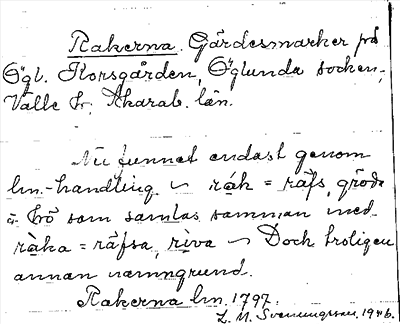 Rakerna. Gärdesmarker på
Ögl. Korsgården, Öglunda socken,
Valle h. Skarab. län.
Nu funnet endast genom
lm.-handling ~ räk = räfs, gröda
o. hö som samlas samman med
räka = räfsa, riva ~ Dock troligen
annan namngrund.
Rakerna lm. 1797.
L. M. Svenungsson. 1946.